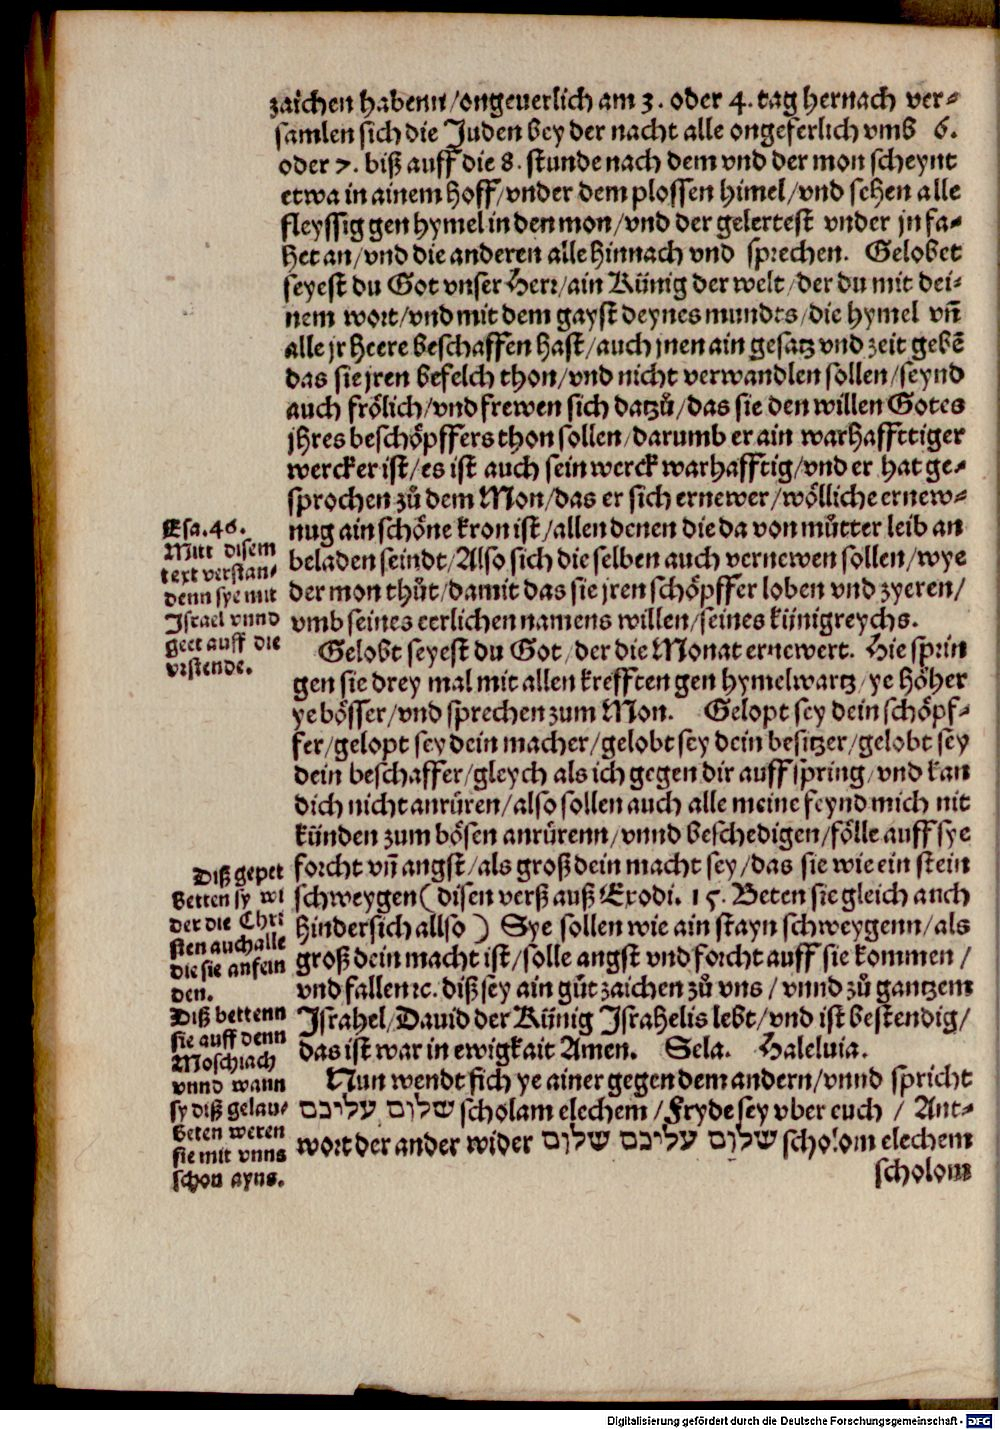 zaichen habenn/ongeuerlich am 3. oder 4. tag hernach ver-
samlen sich die Juden bey der nacht alle ongeferlich vmb 6.
oder 7. biß auff die 8. stunde nach dem vnd der mon scheynt
etwa in ainem hoff/vnder dem plossen himel/vnd sehen alle
fleyssig gen hymel in den mon/vnd der gelertest vnder jn fa-
het an/vnd die anderen alle hinnach vnd sprechen. Gelobet
seyest du Got vnser Herr/ain Künig der welt/der du mit dei-
nem wort/vnd mit dem gayst deynes mundes/die hymel vñ
alle jr heere beschaffen hast/auch jnen ain gesatz vnd zeit gebẽ
das sie jren befelch thon/vnd nicht verwandlen sollen/seynd
auch frölich/vnd frewen sich datzů/das sie den willen Gotes
jhres beschöpffers thon sollen/darumb er ain warhaffttiger
wercker ist/es ist auch sein werck warhafftig/vnd er hat ge-
sprochen zů dem Mon/das er sich ernewer/wölliche ernew-
nug ain schöne kron ist/allen denen die da von můtter leib an
beladen seindt/Also sich die selben auch vernewen sollen/wye
der mon thůt/damit das sie jren schöpffer loben vnd zyeren/
vmb seines eerlichen namens willen/seines künigreychs.
Esa. 46.
Mitt disem
text verstan-
denn sye mit
Israel vnnd
geet auff die
vrstende.
Gelobt seyest du Got/der die Monat ernewert. Hie sprin
gen sie drey mal mit allen krefften gen hymelwartz/ye höher
ye bösser/vnd sprechen zum Mon. Gelopt sey dein schöpf-
fer/gelopt sey dein macher/gelobt sey dein besitzer/gelobt sey
dein beschaffer/gleych als ich gegen dir auff spring/vnd kan
dich nicht anrüren/also sollen auch alle meine feynd mich nit
künden zum bösen anrürenn/vnnd beschedigen/fölle auff sye
forcht vñ angst/als groß dein macht sey/das sie wie ein stein
schweygen (disen verß auß Exodi. 15. Beten sie gleich auch
hindersich allso) Sye sollen wie ain stayn schweygenn/als
groß dein macht ist/solle angst vnd forcht auff sie kommen/
vnd fallen ꝛc. diß sey ain gůt zaichen zů vns/vnnd zů gantzem
Israhel/Dauid der Künig Israhelis lebt/vnd ist bestendig/
das ist war in ewigkait Amen. Sela. Haleluia.
Diß gepet
betten sy wi
der die Chri
sten auch alle
die sie anfein
den.
Diß bettenn
sie auff denn
Moschiach
vnnd wann
sy diß gelau-
beten weren
sie mit vnns
schon ayns.
Nun wendt sich ye ainer gegen dem andern/vnnd spricht
שלום עליכם scholam elechem/Fryde sey vber euch/Ant-
wort der ander wider שלום עליכם שלום scholom elechem
scholom
Digitalisierung gefördert durch die Deutsche Forschungsgemeinschaft - DFG